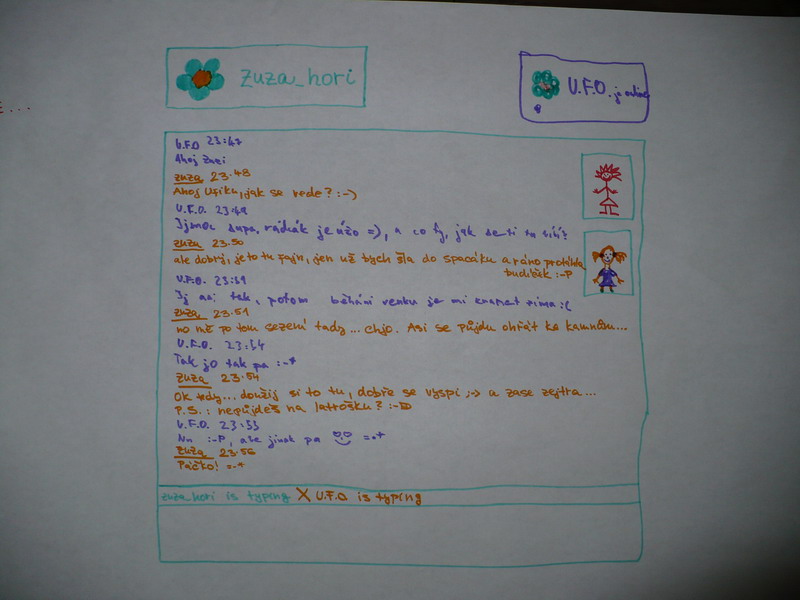 zuza_hori
U.F.O. je online
U.F.O 23:47
Ahoj Zuzi
zuza 23.48
Ahoj Ufíku, jak se vede? :-)
U.F.O. 23:49
supa, je úžo =), a co ty, jak se ti tu líbí?
zuza 23.50
ale dobrý, je to tu fajn, jen už bych šla do spacáku a ráno protáhla
budíček :-P
U.F.O. 23:51
Jj asi tak, potom běhání venku je mi zima :(
zuza 23.51
no mě po tom sezení tady... chjo. Asi se půjdu ohřát ke kamnům...
U.F.O. 23:54
Tak jo tak pa :-*
zuza 23.54
Ok tedy... doužij si to tu, dobře se vyspi ;-) a zase zejtra...
P.S.: nepůjdeš na latrošku? :-D
U.F.O. 23:55
Nn :-P, ale jinak pa =.*
zuza 23.56
Páčko! =.*
zuza_hori is typing X U.F.O. is typing